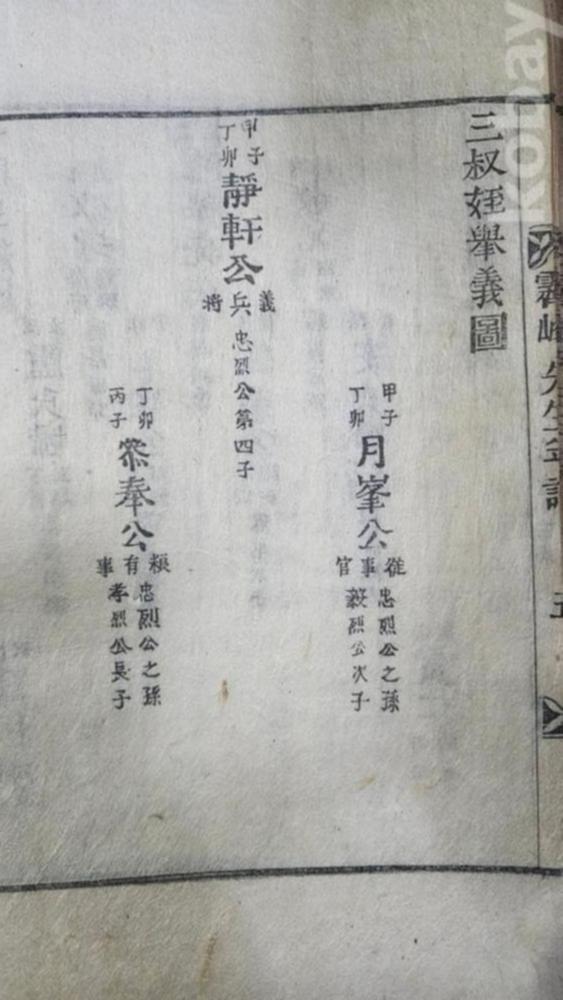 先生年譜
五
三叔姪舉義圖
甲子
丁卯
月峯公
從事官
忠烈公之孫
毅烈公次子
甲子
丁卯
靜軒公
義兵將
忠烈公第四子
丁卯
丙子
叅奉公
有事
忠烈公之孫
孝烈公長子
kobay